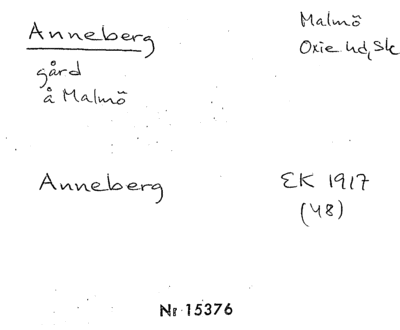 Anneberg
Malmö
Oxie hd, Sk
gård
å Malmö
Anneberg
EK 1917
(48)
Nr 15376